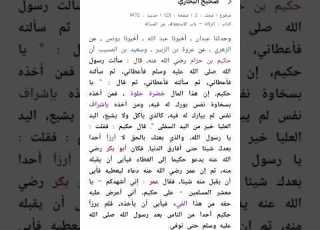 صحيح البخاري
وحدثنا عبدان ، أخبرنا عبد الله ، أخبرنا يونس ، عن
الزهري ، عن عروة بن الزبير ، وسعيد بن المسيب أن
حكيم بن حزام رضي الله عنه، قال : سألت رسول
الله صلى الله عليه وسلم فأعطاني، ثم سألته
فأعطاني، ثم سألته فأعطاني، ثم قال : " يا
حكيم، إن هذا المال خضرة حلوة ، فمن أخذه
بسخاوة نفس بورك له فيه، ومن أخذه بإشراف
نفس لم يبارك له فيه، كالذي يأكل ولا يشبع، اليد
العليا خير من اليد السفلى ". قال حكيم : فقلت :
يا رسول الله، والذي بعثك بالحق لا أرزأ أحدا
بعدك شيئا حتى أفارق الدنيا. فكان أبو بكر رضي
الله عنه يدعو حكيما إلى العطاء فيأبى أن يقبله
منه، ثم إن عمر رضي الله عنه دعاه ليعطيه فأبى
أن يقبل منه شيئا. فقال عمر : إني أشهدكم - يا
معشر المسلمين - على حكيم، أني أعرض عليه
حقه من هذا الفيء فيأبى أن يأخذه. فلم يرزأ
حكيم أحدا من الناس بعد رسول الله صلى الله
عليه وسلم حتى توفي